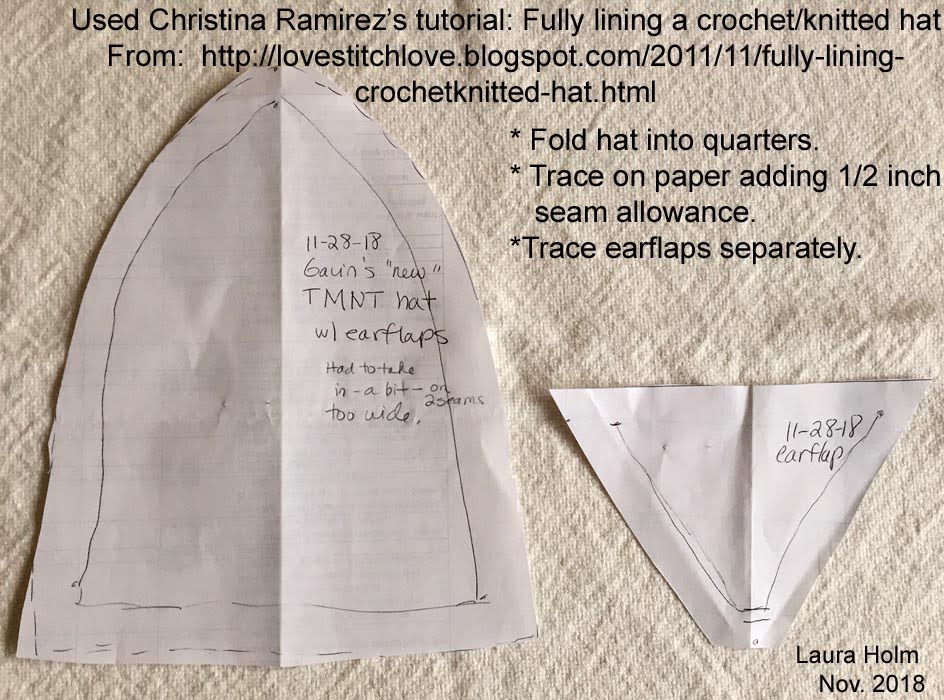 Used Christina Ramirez's tutorial: Fully lining a crochet/knitted hat
From:  http://lovestitchlove.blogspot.com/2011/11/fully-lining-
crochetknitted-hat.html
* Fold hat into quarters.
* Trace on paper adding 1/2 inch
seam allowance.
*Trace earflaps separately.
11-28-18
Gavin's "new"
TMNT hat
w/ earflaps
Had to take
in - a bit - on
2 seams
too wide.
11-28-18
earflap
Laura Holm
Nov. 2018